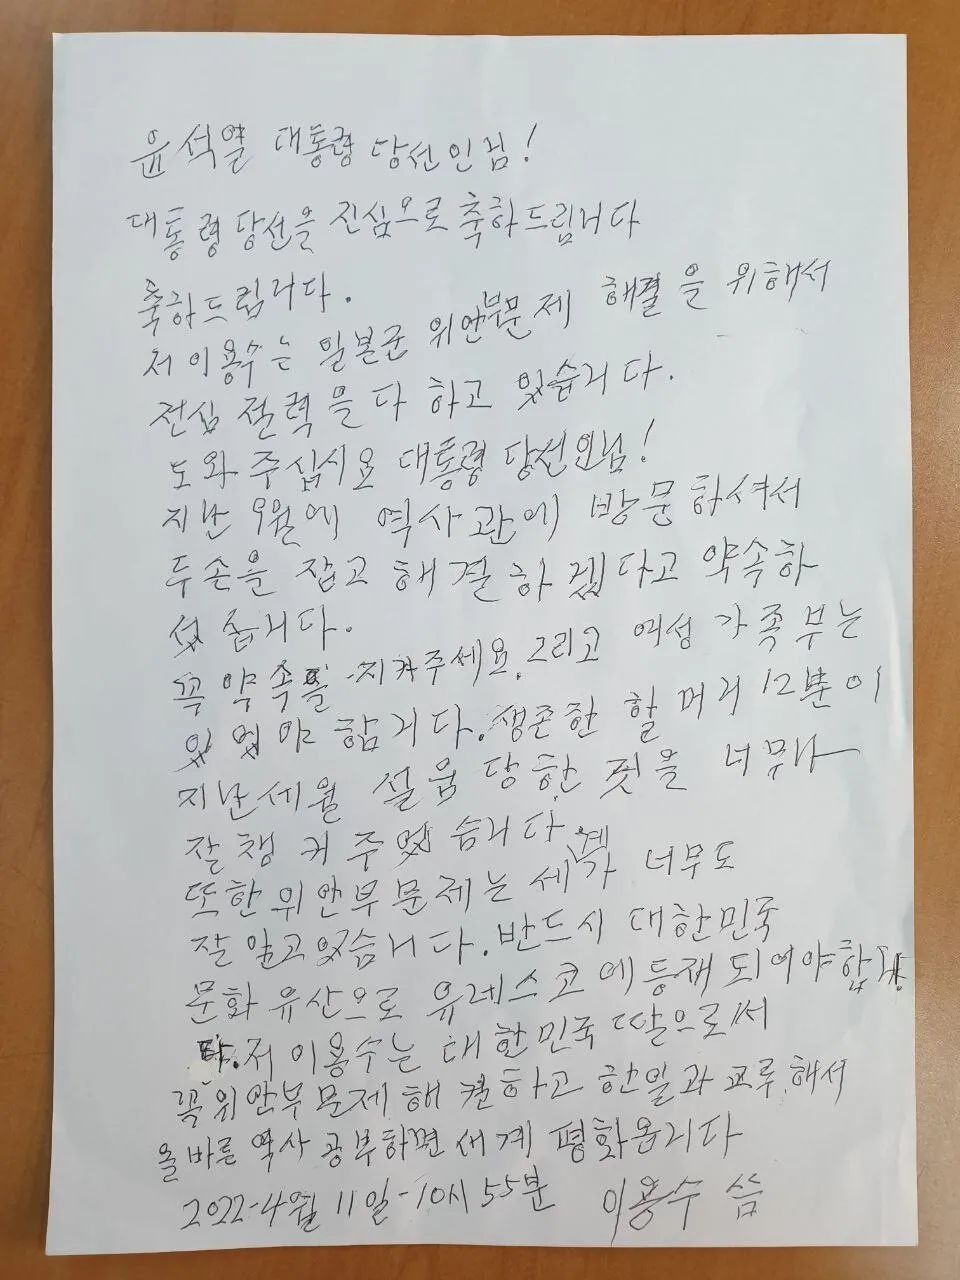 윤석열 대통령 당선인님!
대통령 당선을 진심으로 축하드립니다
축하드립니다.
저 이용수는 일본군 위안부문제 해결을 위해서
전심 전력을 다 하고 있습니다.
도와 주십시요 대통령 당선인님!
지난 9월에 역사관에 방문하셔서
두손을 잡고 해결하겠다고 약속하
셨습니다.
꼭 약속을 지켜주세요. 그리고 여성가족부는
있어야 합니다. 생존한 할머니 12분이
지난세월 설움 당한 것을 너무나
잘 챙겨 주었습니다
또한 위안부문제는 세계가 너무도
잘 알고있습니다. 반드시 대한민국
문화유산으로 유네스코에 등재 되어야합니
다. 저 이용수는 대한민국 딸으로써
꼭 위안부문제 해결하고 한일과 교류해서
올바른 역사 공부하면 세계 평화옵니다
2022-4월 11일-10시 55분 이용수 씀